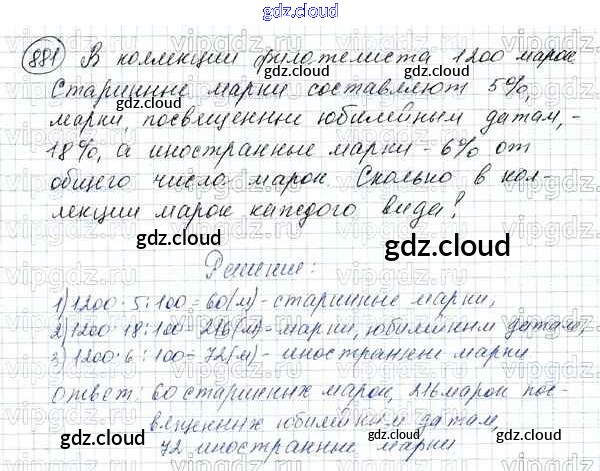 gdz.cloud
881 В коллекции филателиста 1200 марок
Старинные марки составляют 5%,
марки, посвященные юбилейным датам,-
18%, а иностранные марки - 6% от
общего число марок. Сколько в кол-
лекции марок каждого вида?
Решение:
1) 1200 · 5 : 100 = 60(м) - старинные марки,
2) 1200 · 18 : 100 = 216(м) - марки, юбилейным датам,
3) 1200 · 6 : 100 = 72(м) - иностранные марки
Ответ: 60 старинных марок, 216 марок пос-
вященных юбилейным датам,
72 иностранные марки